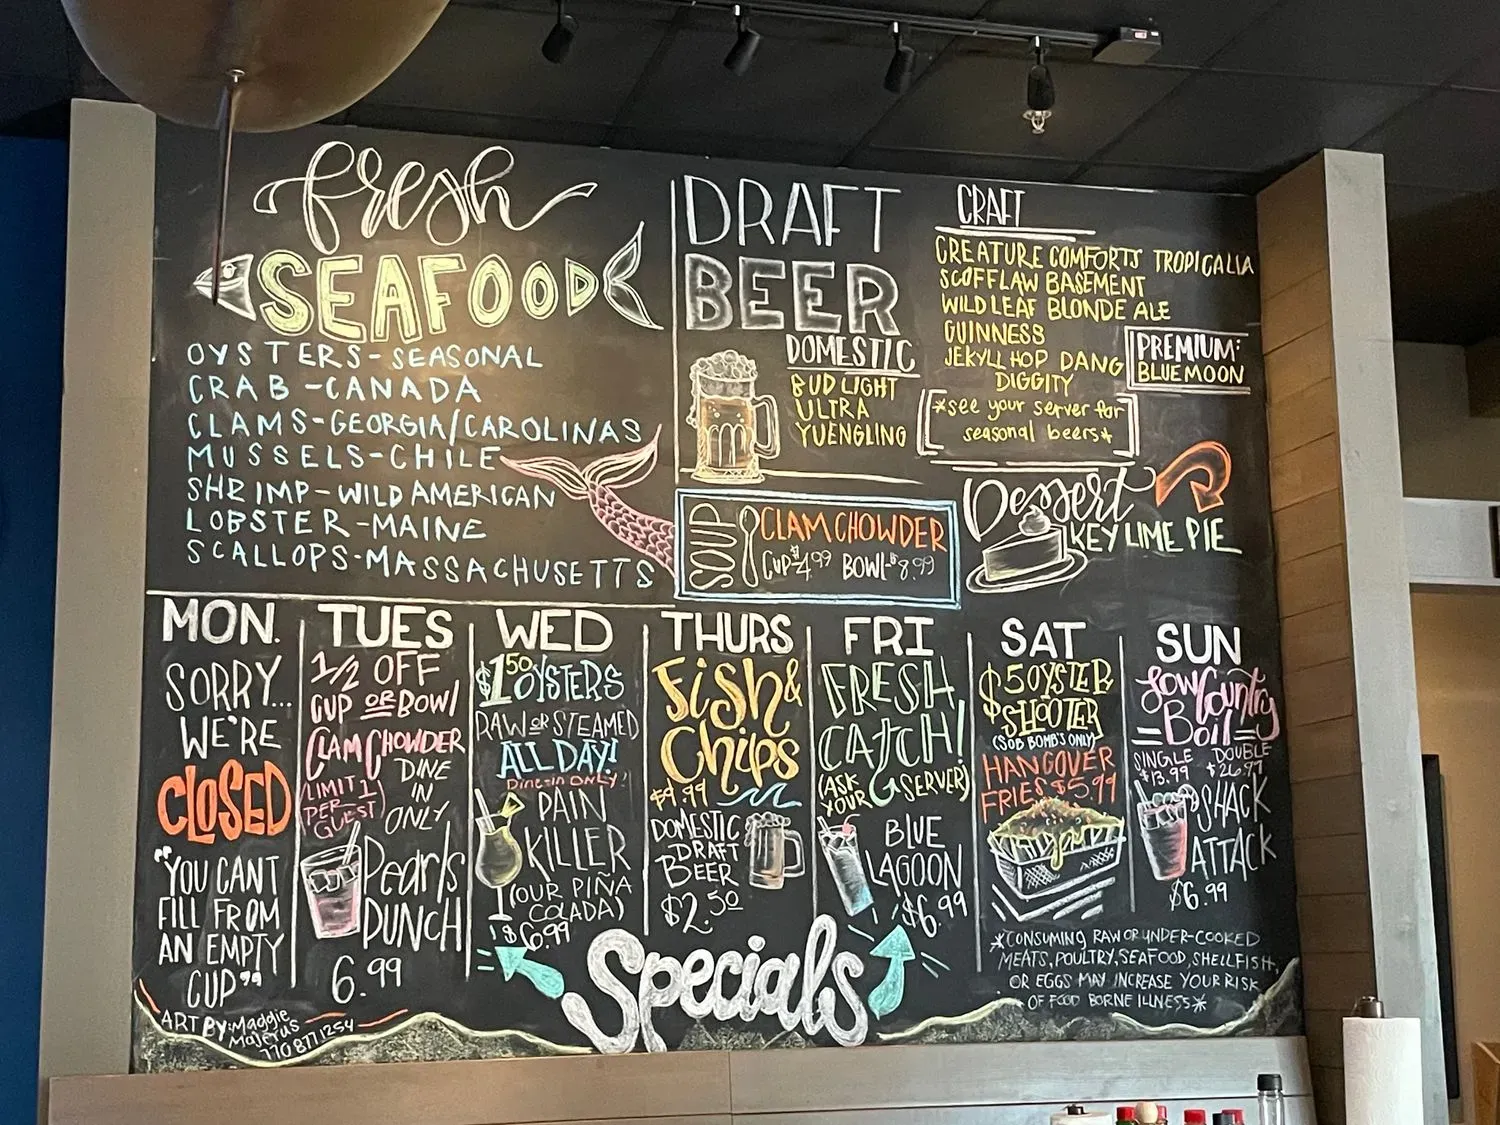 fresh
SEAFOOD
OYSTERS-SEASONAL
CRAB-CANADA
CLAMS-GEORGIA/CAROLINAS
MUSSELS-CHILE
SHRIMP-WILD AMERICAN
LOBSTER-MAINE
SCALLOPS-MASSACHUSETTS
DRAFT
BEER
DOMESTIC
BUD LIGHT
ULTRA
YUENGLING
CRAFT
CREATURE COMFORTS TROPICALIA
SCOFFLAW BASEMENT
WILD LEAF BLONDE ALE
GUINNESS
JEKYLL HOP DANG
DIGGITY
PREMIUM:
BLUE MOON
*see your server for
seasonal beers*
SOUP
CLAM CHOWDER
CUP-$4.99 BOWL-$8.99
Dessert
KEY LIME PIE
MON.
SORRY...
WE'RE
CLOSED
"YOU CANT
FILL FROM
AN EMPTY
CUP"
TUES
1/2 OFF
CUP OR BOWL
CLAM CHOWDER
LIMIT 1
PER
GUEST
DINE
IN
ONLY
Pearls
PUNCH
6.99
WED
$1.50 OYSTERS
RAW OR STEAMED
ALL DAY!
Dine-in ONLY!
PAIN
KILLER
(OUR PIÑA
COLADA)
$6.99
THURS
Fish &
Chips
$9.99
DOMESTIC
DRAFT
BEER
$2.50
FRI
FRESH
CATCH!
(ASK
YOUR SERVER)
BLUE
LAGOON
$6.99
SAT
$5 OYSTER
SHOOTER
(SOB BOMB'S ONLY)
HANGOVER
FRIES $5.99
SUN
Low Country
Boil
SINGLE DOUBLE
$13.99 $26.99
SHACK
ATTACK
$6.99
Specials
*CONSUMING RAW OR UNDER-COOKED
MEATS, POULTRY, SEAFOOD, SHELLFISH,
OR EGGS MAY INCREASE YOUR RISK
OF FOOD BORNE ILLNESS*
ART BY: Maddie
Majerus
770 877 1254